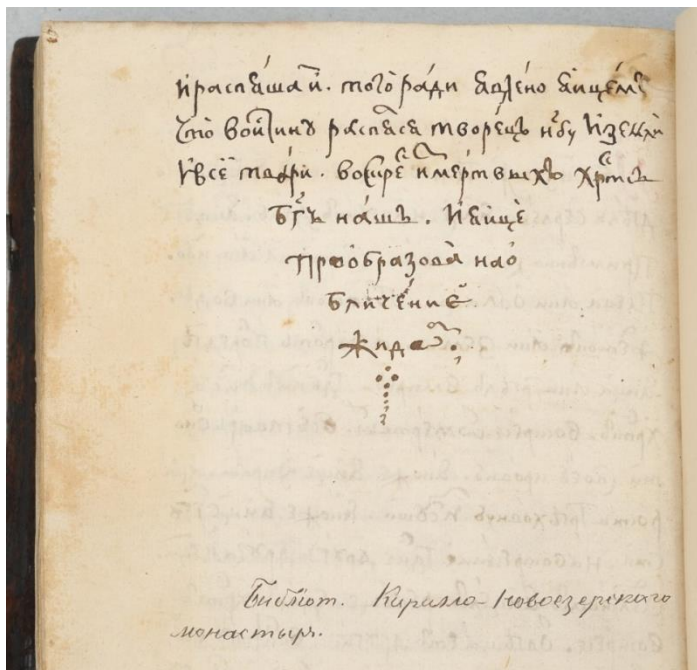 и распѧша и. того ради ꙗвлено ꙗйцемъ
что воистину распѧсѧ творецъ нбу и земли
и всеи твари. воскресе из мертвыхъ хртосъ
бгъ нашъ. и ꙗйце
преобразова на о
бличение
жидо.
Библіот. Кирилло-Новоезерскаго
монастыря.